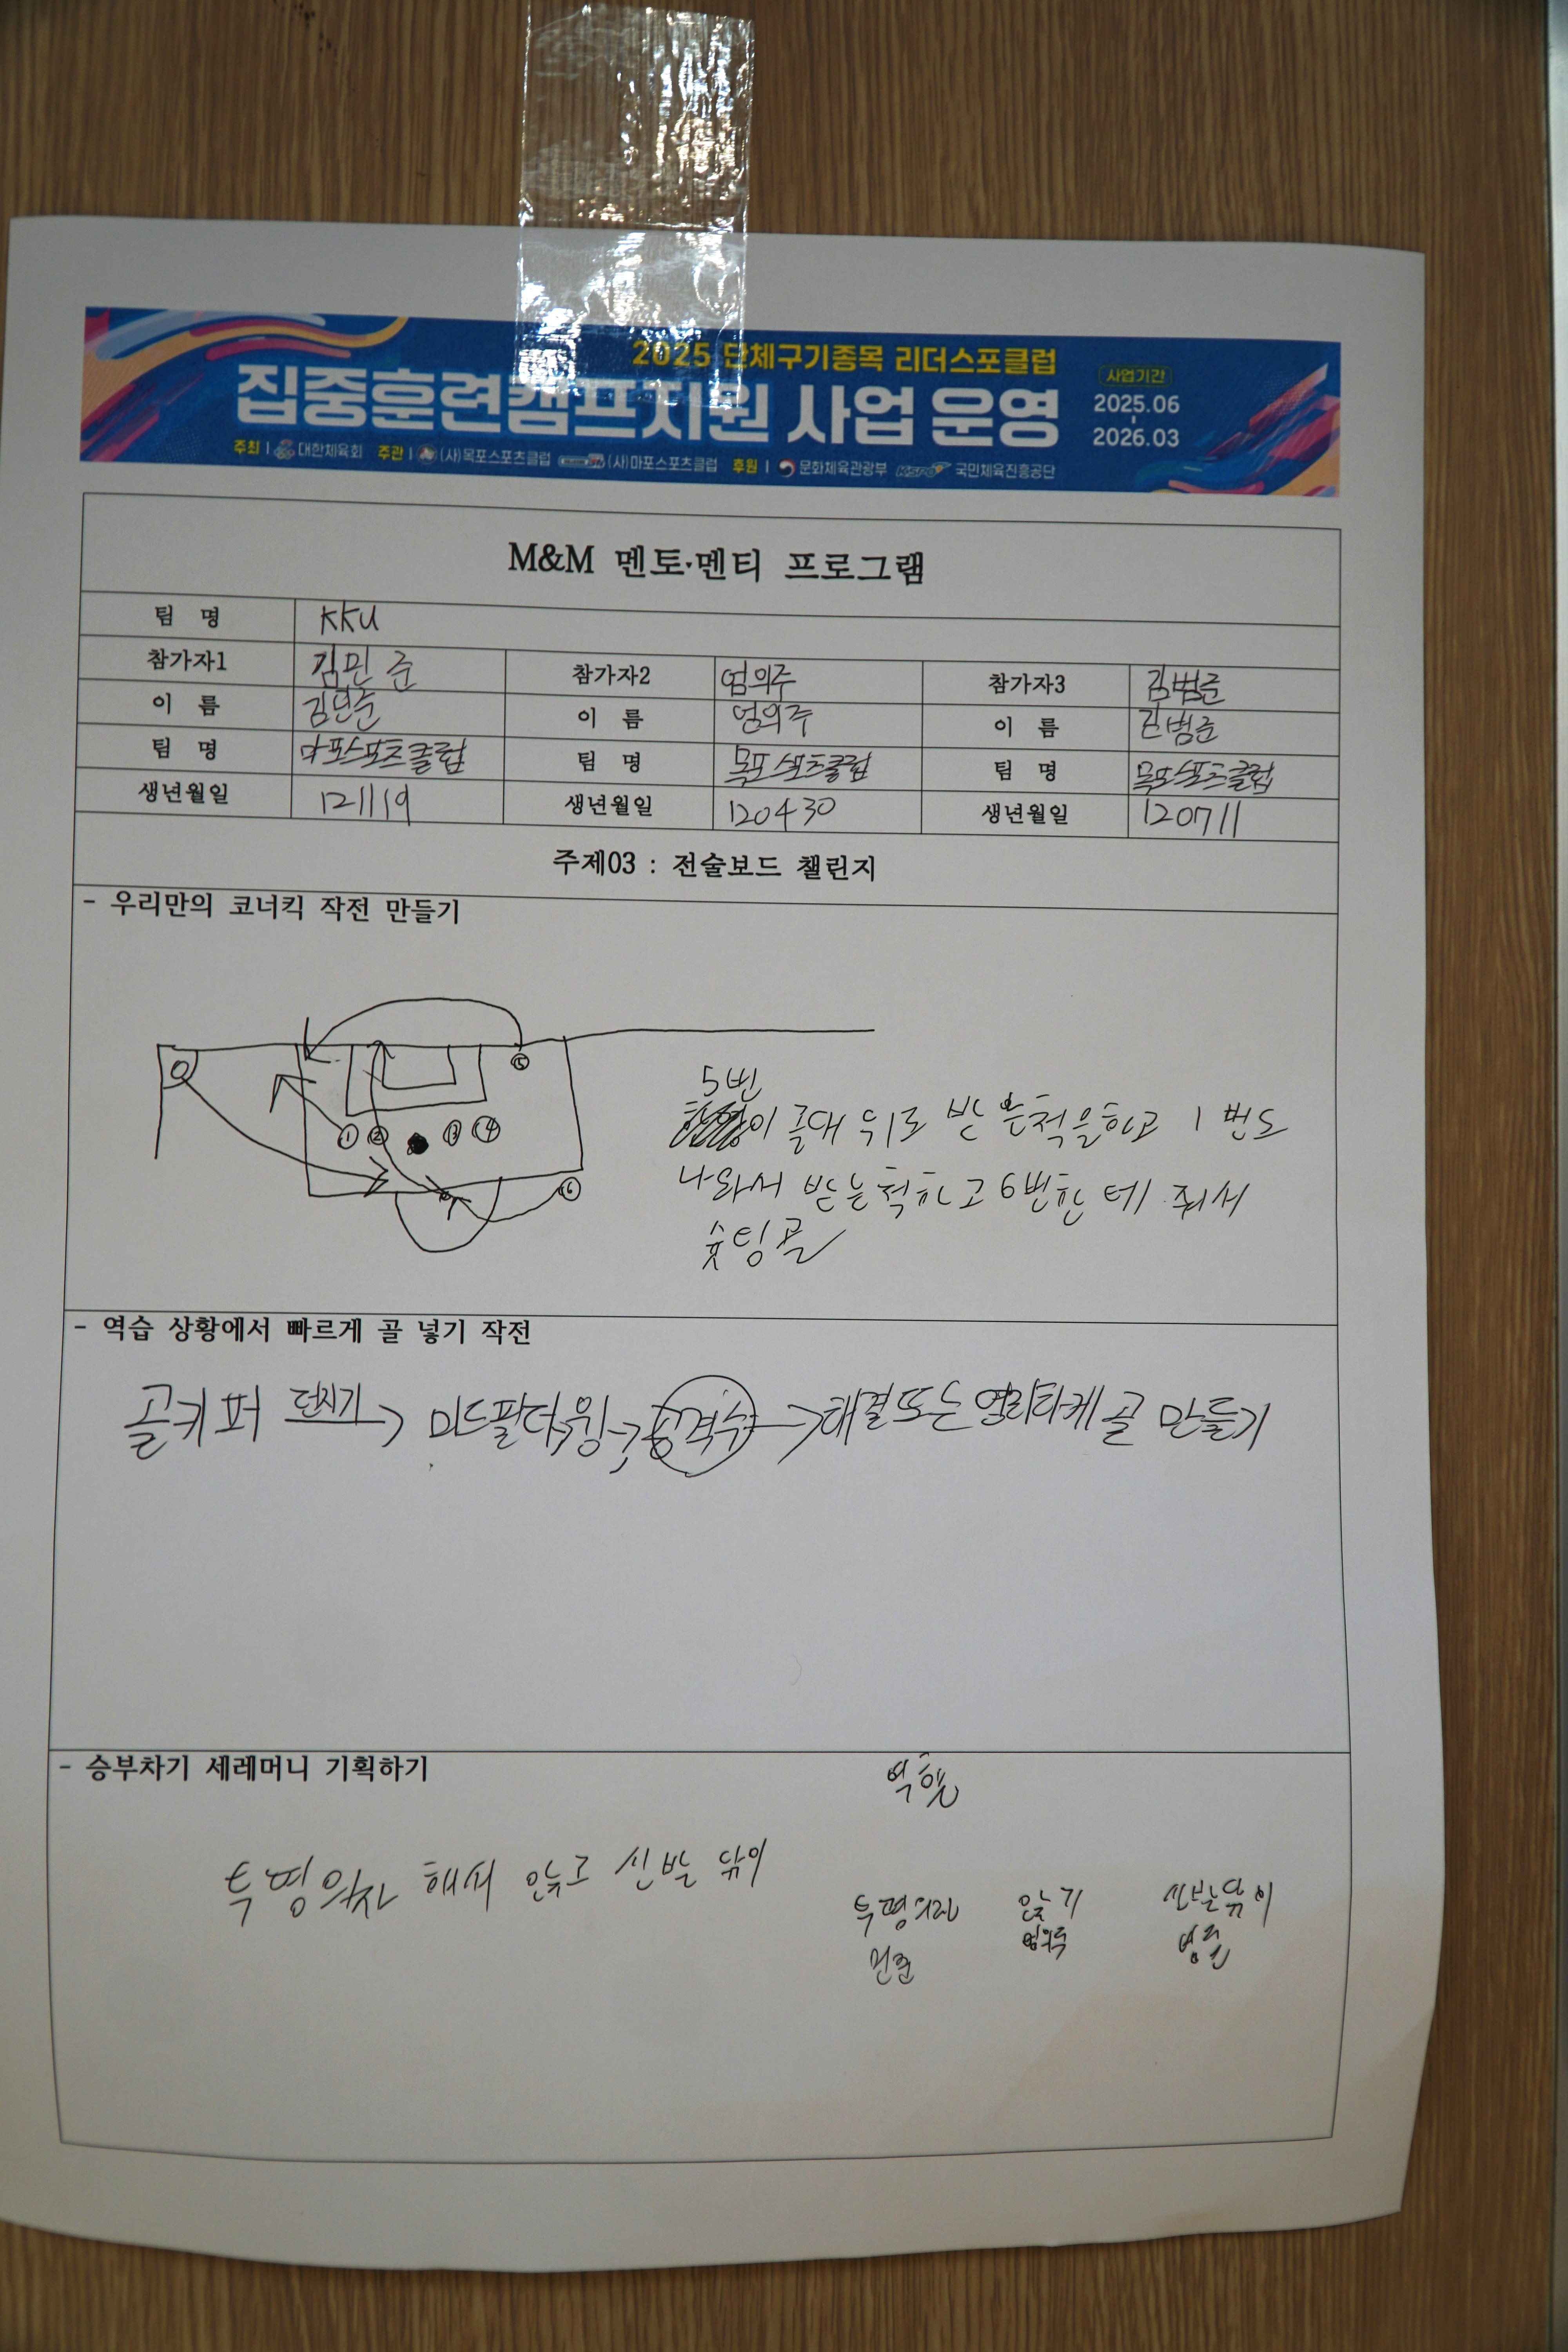 2025 단체구기종목 리더스포클럽
집중훈련캠프지원 사업 운영
사업기간
2025.06
-
2026.03
주최 | 대한체육회 주관 | (사)목포스포츠클럽 (사)마포스포츠클럽 후원 | 문화체육관광부 KSPO 국민체육진흥공단
M&M 멘토·멘티 프로그램
팀 명 KKU
참가자1 김민준 참가자2 엄의주 참가자3 김범준
이 름 김민준 이 름 엄의주 이 름 김범준
팀 명 마포스포츠클럽 팀 명 목포스포츠클럽 팀 명 목포스포츠클럽
생년월일 121119 생년월일 120430 생년월일 120711
주제03 : 전술보드 챌린지
- 우리만의 코너킥 작전 만들기
5
1 2 3 4
6
5번
이 골대 뒤로 받는척을하고 1번도
나와서 받는척하고 6번한테 줘서
슛팅골
- 역습 상황에서 빠르게 골 넣기 작전
골키퍼 던지기→ 미드필더,윙→공격수→해결또는 열리타케 골 만들기
- 승부차기 세레머니 기획하기
역할
투명의자 해서 앉고 신발 닦이
투명의자 앉기 신발닦이
민준 엄의주 범준